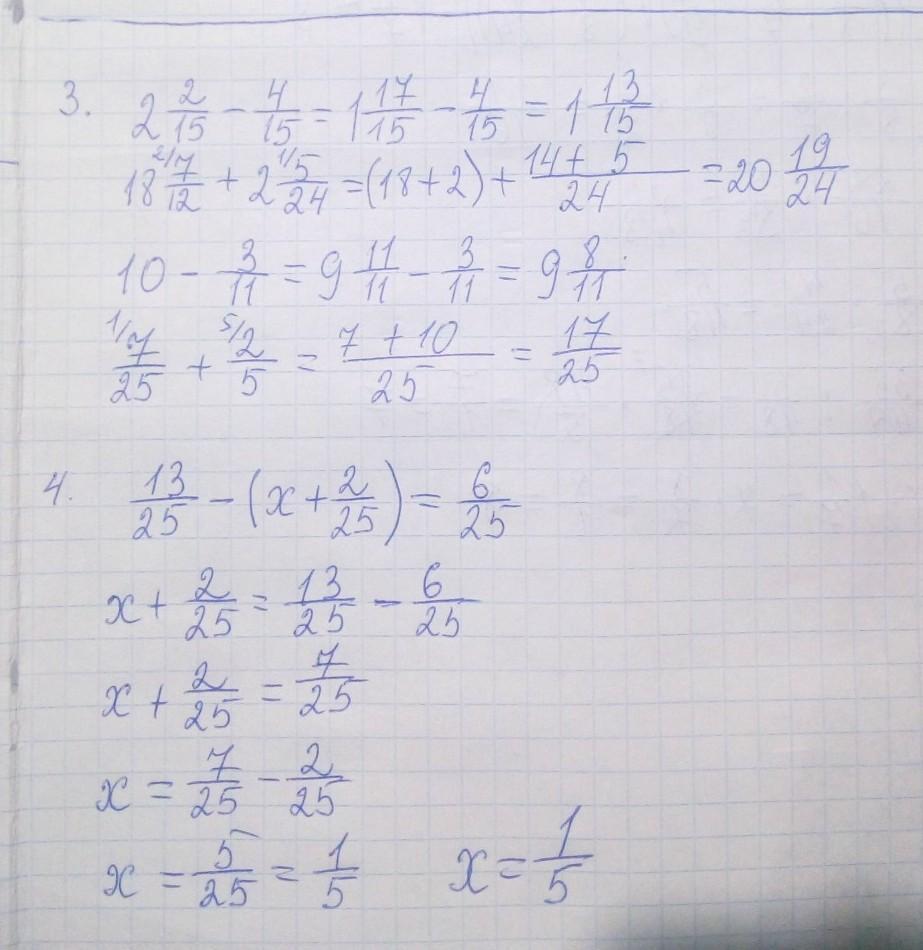 3. 2 2/15 - 4/15 = 1 17/15 - 4/15 = 1 13/15
18 2/ 7/12 + 2 1/ 5/24 = (18+2) + (14+ 5)/24 = 20 19/24
10 - 3/11 = 9 11/11 - 3/11 = 9 8/11
1/ 7/25 + 5/ 2/5 = (7 + 10)/25 = 17/25
4. 13/25 - (x + 2/25) = 6/25
x + 2/25 = 13/25 - 6/25
x + 2/25 = 7/25
x = 7/25 - 2/25
x = 5/25 = 1/5 x = 1/5